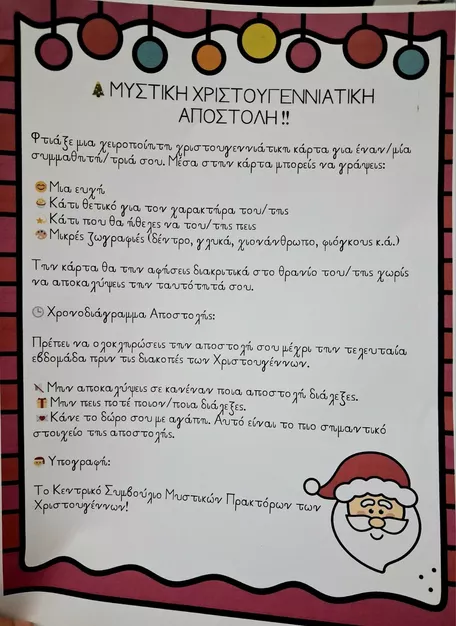 🎄 ΜΥΣΤΙΚΗ ΧΡΙΣΤΟΥΓΕΝΝΙΑΤΙΚΗ
ΑΠΟΣΤΟΛΗ !!
Φτιάξε μια χειροποίητη χριστουγεννιάτικη κάρτα για έναν/μία
συμμαθητή/τριά σου. Μέσα στην κάρτα μπορείς να γράψεις:
😊 Μια ευχή
😄 Κάτι θετικό για τον χαρακτήρα του/της
🌟 Κάτι που θα ήθελες να του/της πεις
🎨 Μικρές ζωγραφιές (δέντρο, γλυκά, χιονάνθρωπο, φιόγκους κ.ά.)
Την κάρτα θα την αφήσεις διακριτικά στο θρανίο του/της χωρίς
να αποκαλύψεις την ταυτότητά σου.
🕒 Χρονοδιάγραμμα Αποστολής:
Πρέπει να ολοκληρώσεις την αποστολή σου μέχρι την τελευταία
εβδομάδα πριν τις διακοπές των Χριστουγέννων.
Μην αποκαλύψεις σε κανέναν ποια αποστολή διάλεξες.
🎁 Μην πεις ποτέ ποιον/ποια διάλεξες.
💌 Κάνε το δώρο σου με αγάπη. Αυτό είναι το πιο σημαντικό
στοιχείο της αποστολής.
🎅 Υπογραφή:
Το Κεντρικό Συμβούλιο Μυστικών Πρακτόρων των
Χριστουγέννων!